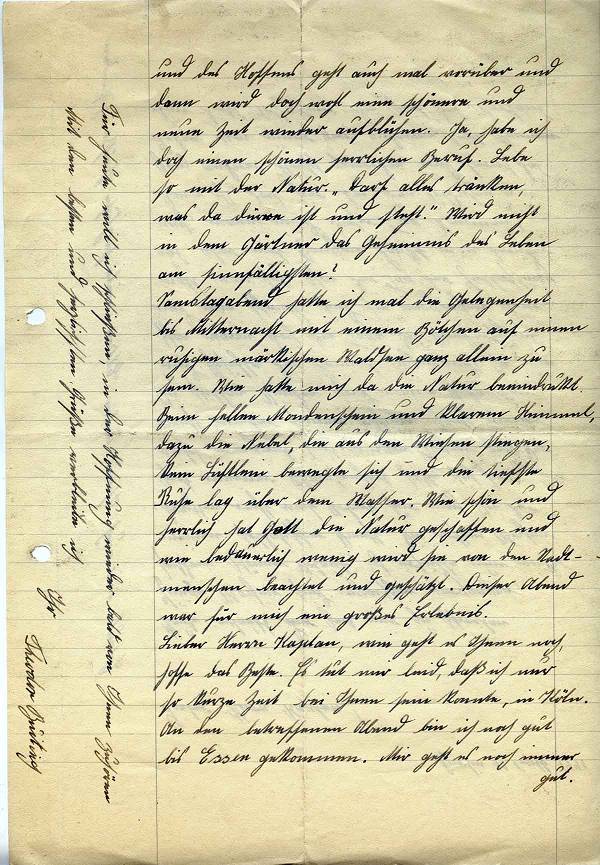 und des Hoffens geht auch mal vorüber und
dann wird doch wohl eine schönere und
neue Zeit wieder aufblühen. Ja, habe ich
doch einen schönen herrlichen Beruf. Lebe
so mit der Natur. „Darf alles tränken,
was da dürre ist und steht." Wird nicht
in dem Gärtner das Geheimnis des Leben
am sinnfälligsten?
Samstagabend hatte ich mal die Gelegenheit
bis Mitternacht mit einem Bötchen auf einen
ruhigen märkischen Waldsee ganz allein zu
sein. Wie hatte mich da die Natur beeindruckt
Beim hellen Mondenschein und klarem Himmel,
dazu die Nebel, die aus den Wiesen stiegen,
kein Lüftlein bewegte sich und die tiefste
Ruhe lag über dem Wasser. Wie schön und
herrlich hat Gott die Natur geschaffen und
wie bedauerlich wenig wird sie von den
menschen beachtet und geschätzt. Dieser Abend
war für mich ein großes Erlebnis.
Lieber Herrn Kaplan, wie geht es Ihnen noch,
hoffe das Beste. Es tut mir leid, daß ich nur
so kurze Zeit bei Ihnen sein konnte, in Köln.
An den betreffenen Abend bin ich noch gut
bis Essen gekommen. Mir geht es noch immer
gut.
Für heute will ich schließen, in der Hoffnung wieder bald von Ihnen zuhören
Mit den besten und herzlichsten Grüße verbleibe ich
Ihr
Theodor